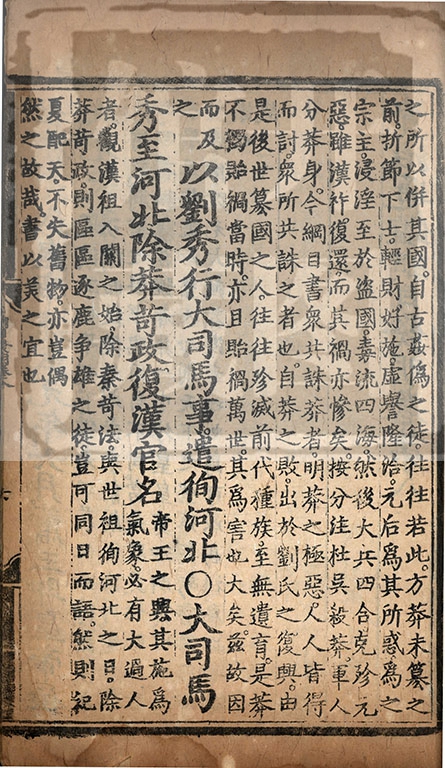 之所以併其國自古姦僞之徒往往若此方莽未篡之
前折節下士輕財好施虛譽隆洽元后爲其所惑爲之
宗主浸淫至於盜國毒流四海然後大兵四合克殄元
惡雖漢祚復還而其禍亦慘矣按分注杜吳殺莽軍人
分莽身今綱目書衆共誅莽者明莽之極惡人人皆得
而討衆所共誅之者也自莽之敗出於劉氏之復興由
是後世篡國之人往往殄滅前代種族至無遺育是莽
不獨貽禍當時亦且貽禍萬世其爲害也大矣茲故因
而及
之
以劉秀行大司馬事遣徇河北○大司馬
秀至河北除莽苛政復漢官名
帝王之興其施爲
氣象必有大過人
者觀漢祖入關之始除秦苛法與世祖徇河北之日除
莽苛政則區區逐鹿爭雄之徒豈可同日而語然則祀
夏配天不失舊物亦豈偶
然之故哉書以美之宜也